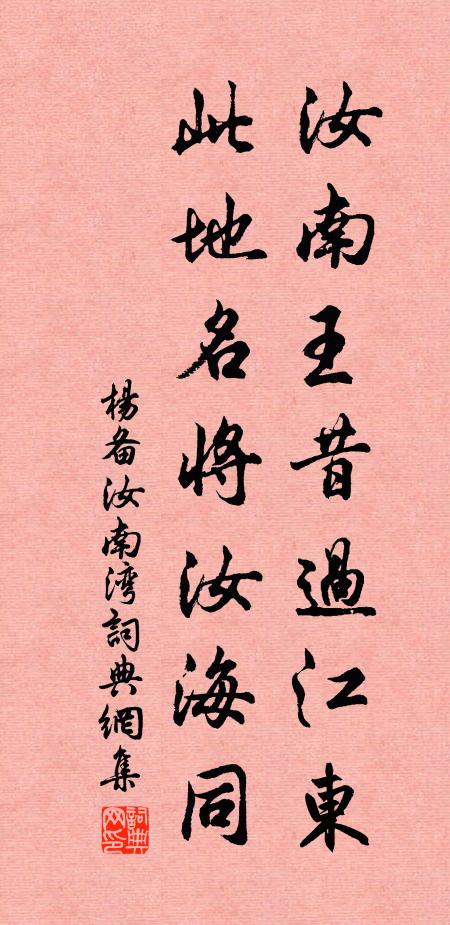 汝南王昔過江東
此地名将汝海同
楊备汝南湾詞典網集
詞典网印